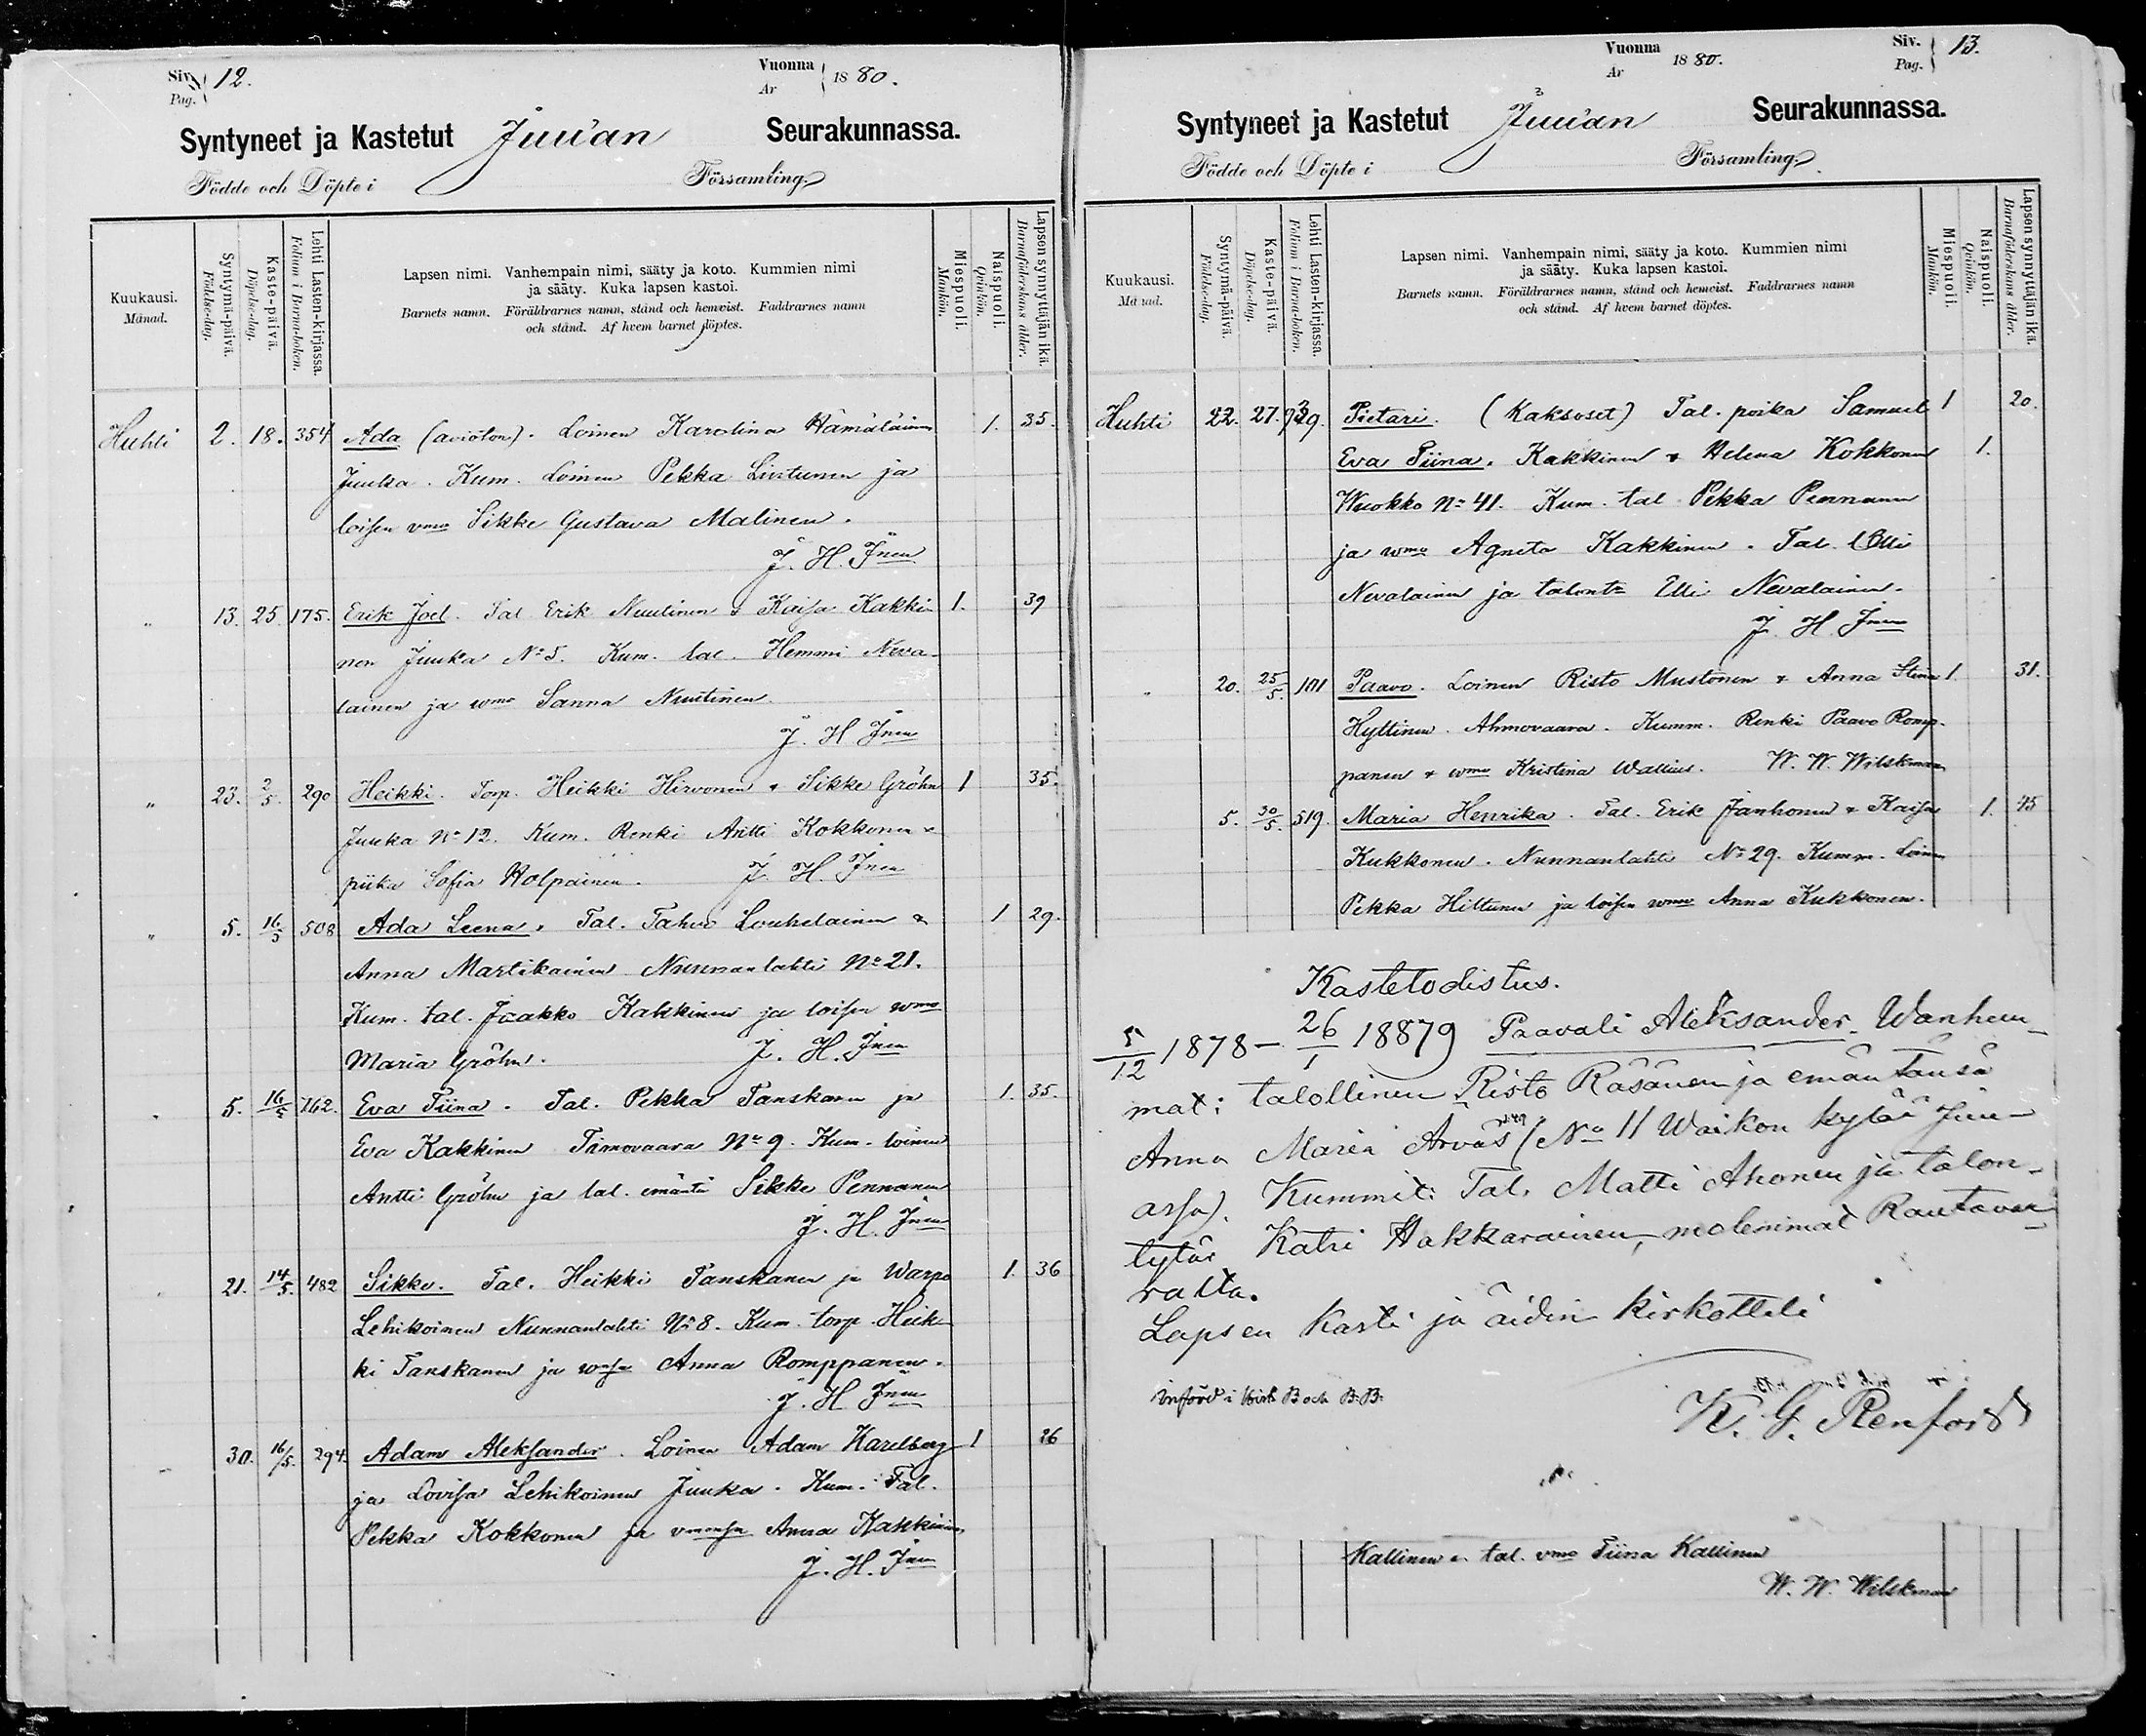 Siv. 12.
Pag.
Vuonna 1880.
Ar
Syntyneet ja Kastetut Juu'an Seurakunnassa.
Födde och Döpte i Församling.
Kuukausi.
Månad.
Syntymä-päivä.
Födelse-dag.
Kaste-päivä.
Döpelse-dag.
Lehti Lasten-kirjassa.
Folium i Barna-boken.
Lapsen nimi. Vanhempain nimi, sääty ja koto. Kummien nimi
ja sääty. Kuka lapsen kastoi.
Barnets namn. Föräldrarnes namn, stånd och hemvist. Faddrarnes namn
och stånd. Af hvem barnet döptes.
Miespuoli.
Mankön.
Naispuoli.
Qvinkön.
Lapsen synnyttäjän ikä.
Barnaföderskans ålder.
Huhti 2. 18. 354 Ada (aviöton). Loinen Karolina Hämäläinen 1. 35.
Juuka. Kum. Loinen Pekka Lintunen ja
loisen vmo Sikke Gustava Malinen.
J. H. Jnen
" 13. 25 175. Erik Joel. Tal. Erik Nuutinen & Kaisa Kakki- 1. 39
nen Juuka No 5. Kum. tal. Hemmi Neva-
lainen ja wmo Sanna Nuutinen.
J. H. Jnen
" 23. 2/5. 290 Heikki. Torp. Heikki Hirvonen & Sikke Gröhn 1 35.
Juuka No 12. Kum. Renki Antti Kokkonen &
piika Sofia Holpainen. J. H. Jnen
" 5. 16/5 508 Ada Leena. Tal. Tahvo Louhelainen & 1 29.
Anna Martikainen Nunnanlahti No 21.
Kum. tal. Jaakko Kakkinen ja loisen wmo
Maria Gröhn. J. H. Jnen
" 5. 16/5 762. Eva Tiina. Tal. Pekka Tanskanen ja 1. 35.
Eva Kakkinen Timovaara No 9. Kum. loinen
Antti Gröhn ja tal. emäntä Sikke Pennanen
J. H. Jnen
" 21. 14/5. 482 Sikke. Tal. Heikki Tanskanen ja Warpo 1. 36
Lehikoinen Nunnanlahti No 8. Kum. torp. Heik-
ki Tanskanen ja Anna Romppanen.
J. H. Jnen
" 30. 16/5. 294. Adam Aleksander. Loinen Adam Karelberg 1 26
ja Lovisa Lehikoinen Juuka. Kum. Tal.
Pekka Kokkonen ja vmonsa Anna Kakkinen.
J. H. Jnen
Vuonna 1880.
Ar
Siv. 13.
Pag.
Syntyneet ja Kastetut Juu'an Seurakunnassa.
Födde och Döpte i Församling.
Kuukausi.
Månad.
Syntymä-päivä.
Födelse-dag.
Kaste-päivä.
Döpelse-dag.
Lehti Lasten-kirjassa.
Folium i Barna-boken.
Lapsen nimi. Vanhempain nimi, sääty ja koto. Kummien nimi
ja sääty. Kuka lapsen kastoi.
Barnets namn. Föräldrarnes namn, stånd och hemvist. Faddrarnes namn
och stånd. Af hvem barnet döptes.
Miespuoli.
Mankön.
Naispuoli.
Qvinkön.
Lapsen synnyttäjän ikä.
Barnaföderskans ålder.
Huhti 22. 27. Pietari. (Kaksoset) Tal. poika Samuel 1 20.
Eva Tiina. Kakkinen & Helena Kokkonen 1.
Wuokko No 41. Kum. tal Pekka Pennanen
ja wmo Agneta Kakkinen. Tal. Olli
Nevalainen ja talont: Elli Nevalainen.
J. H. Jnen
" 20. 25/5. 101 Paavo. Loinen Risto Mustonen & Anna Stina 1. 31.
Hyttinen. Ahmovaara. Kumm. Renki Paavo Romp-
panen & wmo Kristina Wallius. W. W. Wilskman
5. 30/5. 519. Maria Henrika. Tal. Erik Janhonen & Kaisa 1. 45
Kukkonen. Nunnanlahti No 29. Kumm. Loinen
Pekka Hiltunen ja loisen wmo Anna Kukkonen.
Kastetodistus.
5/12 1878 – 26/1 18879 Paavali Aleksander. Wanhem-
mat: talollinen Risto Räsänen ja emäntänsä
Anna Maria Arvas (No 11 Waikon kylää Juu-
assa). Kummit: Tal. Matti Ahonen ja talon-
tytär Katri Hakkarainen, molemmat Rautavaa-
ralta.
Lapsen kasti ja äidin kirkotteli
K. G. Renfors
Införd i Kirk B och B.B.
Kallinen & tal. vmo Tiina Kallinen
W. W. Wilskman